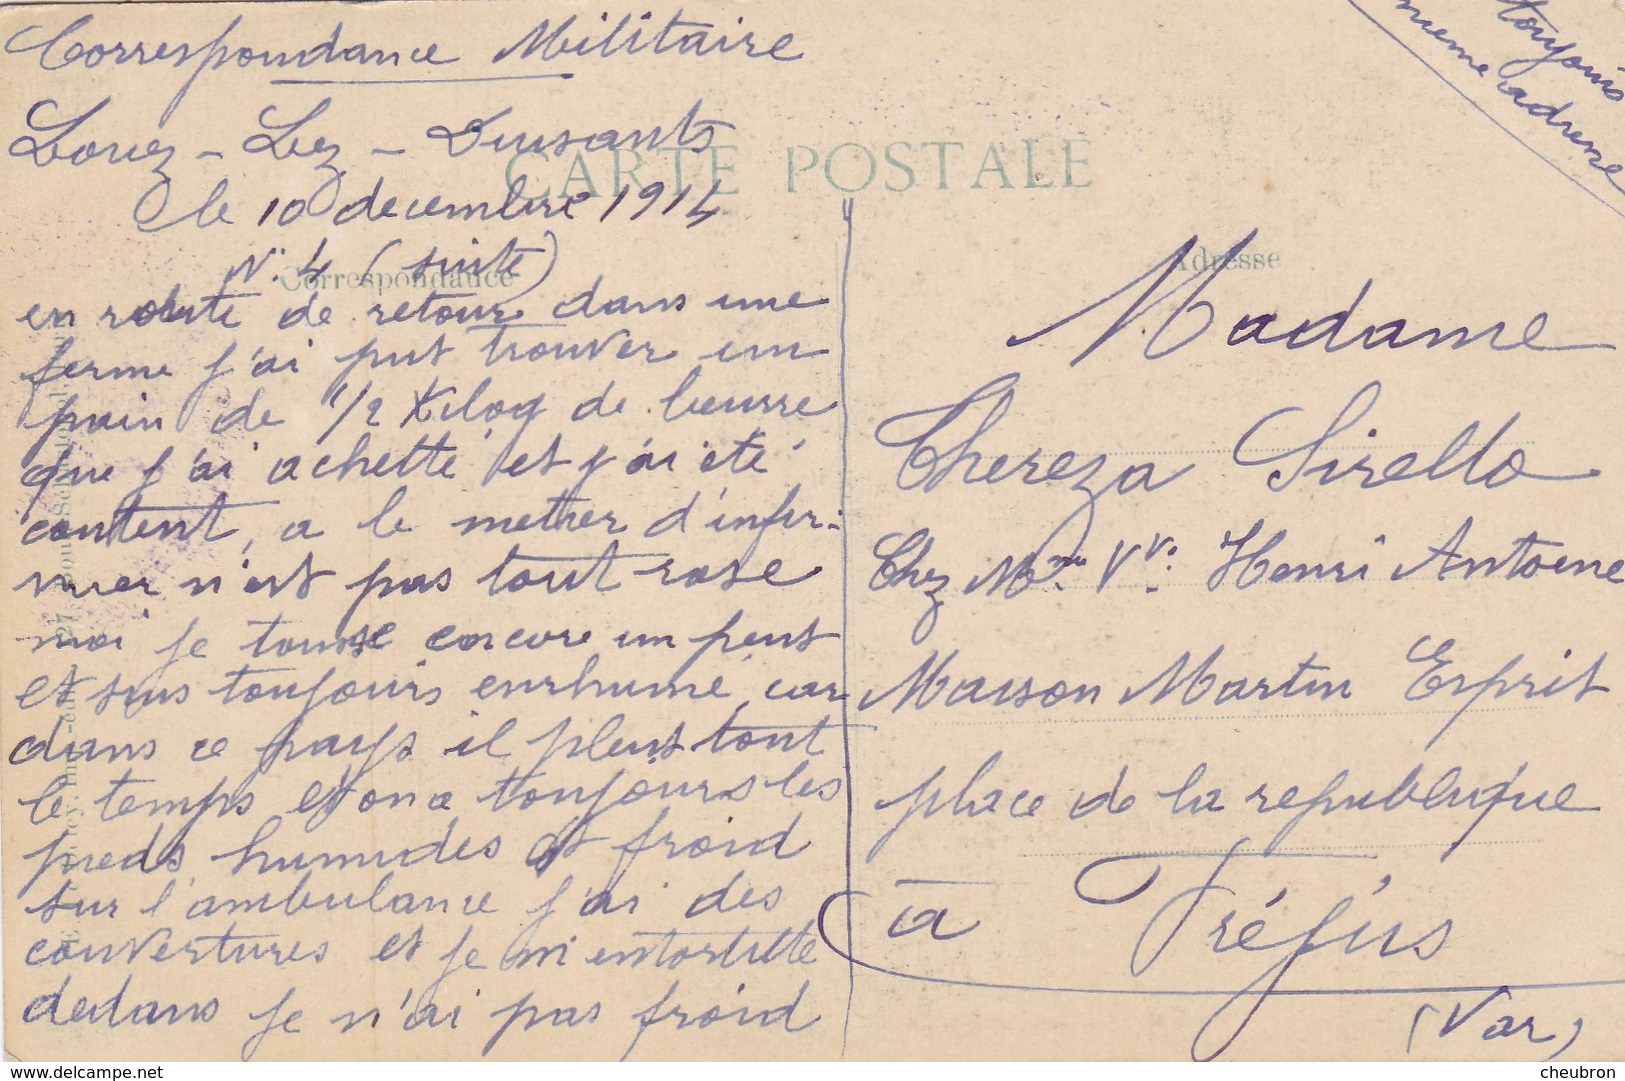 Correspondance Militaire
toujours
meme adresse
Louez - Lez - Duisants
CARTE POSTALE
le 10 decembre 1914
N° 4 (suite)
Correspondance
Adresse
en route de retour dans une
ferme j'ai put trouver un
pain de 1/2 Kilog de beurre
que j'ai achetté et j'ai été
content, a le metier d'infir-
mier n'est pas tout rose
moi je tousse encore un peut
et suis toujours enrhumé car
dans ce pays il pleut tout
le temps et on a toujours les
pieds humides et froid
sur l'ambulance j'ai des
couvertures et je m'entortille
dedans je n'ai pas froid
Madame
Thereza Sirello
Chez Mme Vve Henri Antoine
Maison Martin Esprit
place de la republique
a Fréjus
(Var)
cheubron